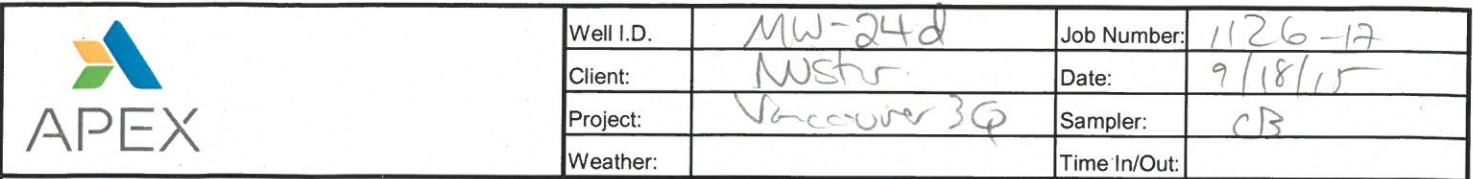 Well I.D. MW-24d Job Number: 1126-17
Client: NuStr Date: 9/18/15
APEX Project: Vancouver 3Q Sampler: CB
Weather: Time In/Out: